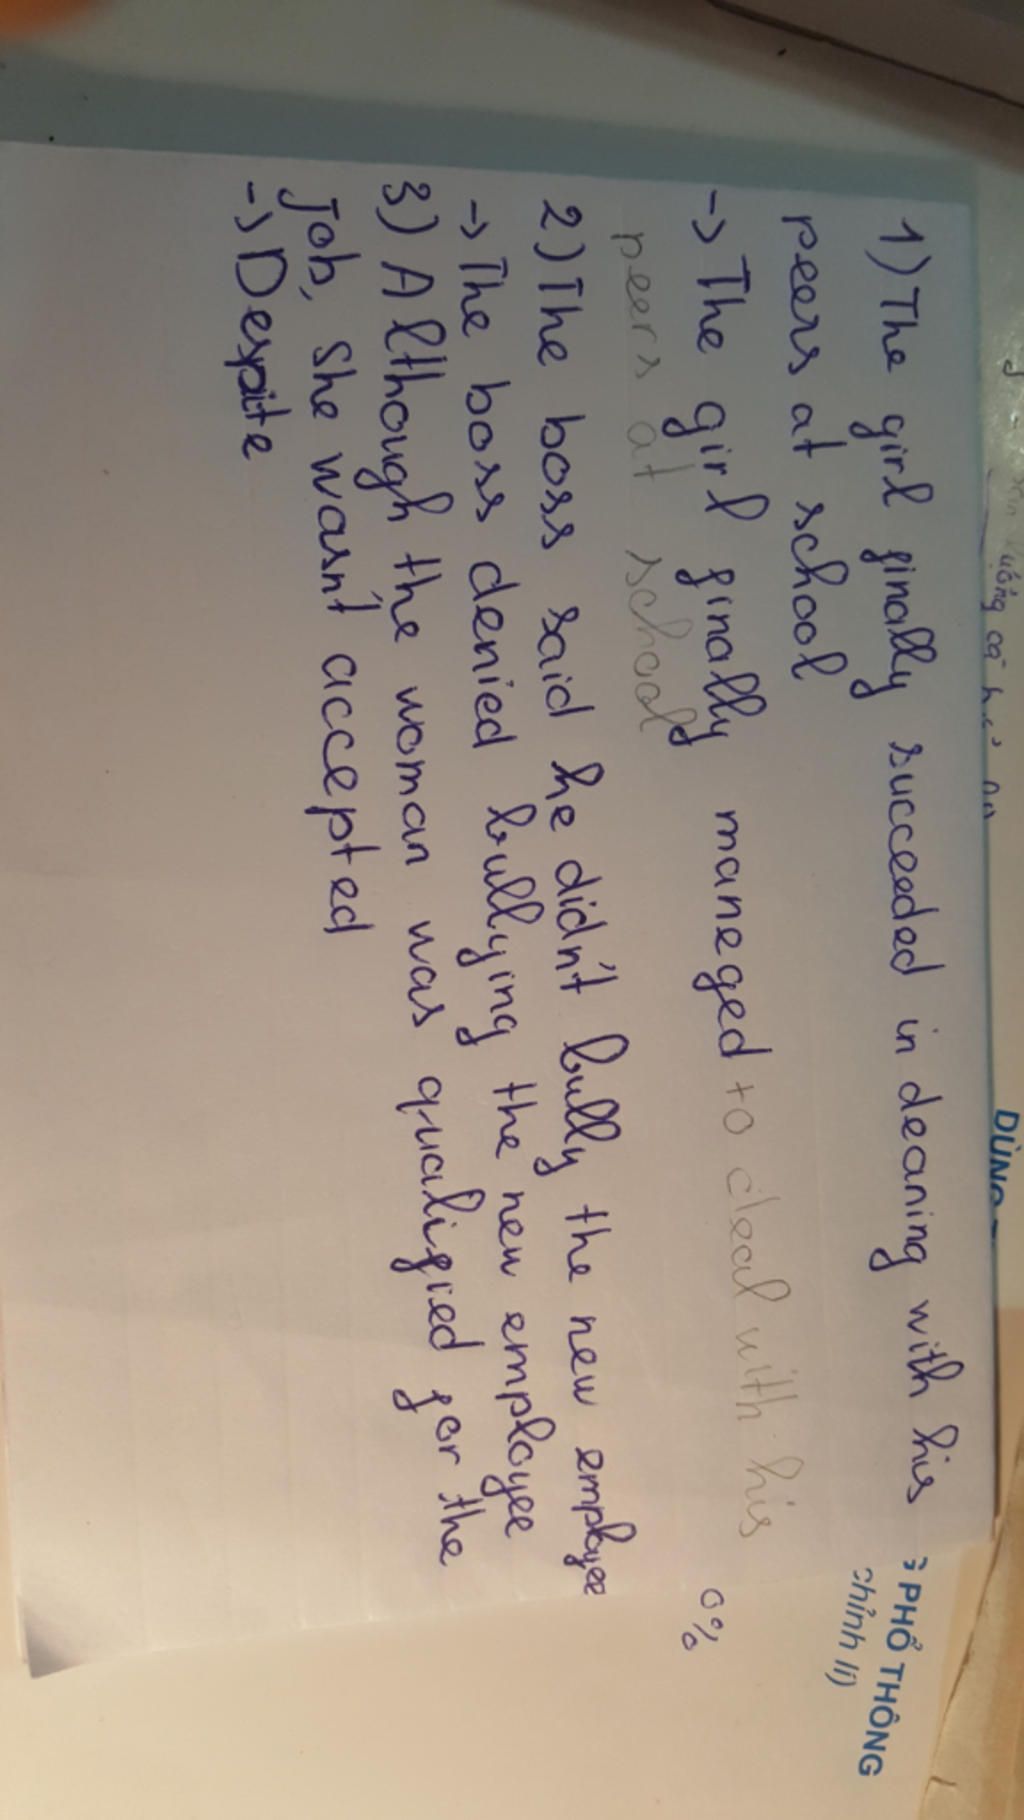 1) The girl finally succeeded in deaning with his
peers at school
-> The girl finally maneged to deal with his
peers at school
2) The boss said he didn't bully the new employee
-> The boss denied bullying the new employee
3) Although the woman was qualified for the
Job, she wasn't accepted
-> Despite
0%
DÙNG
PHỔ THÔNG
chỉnh lí)